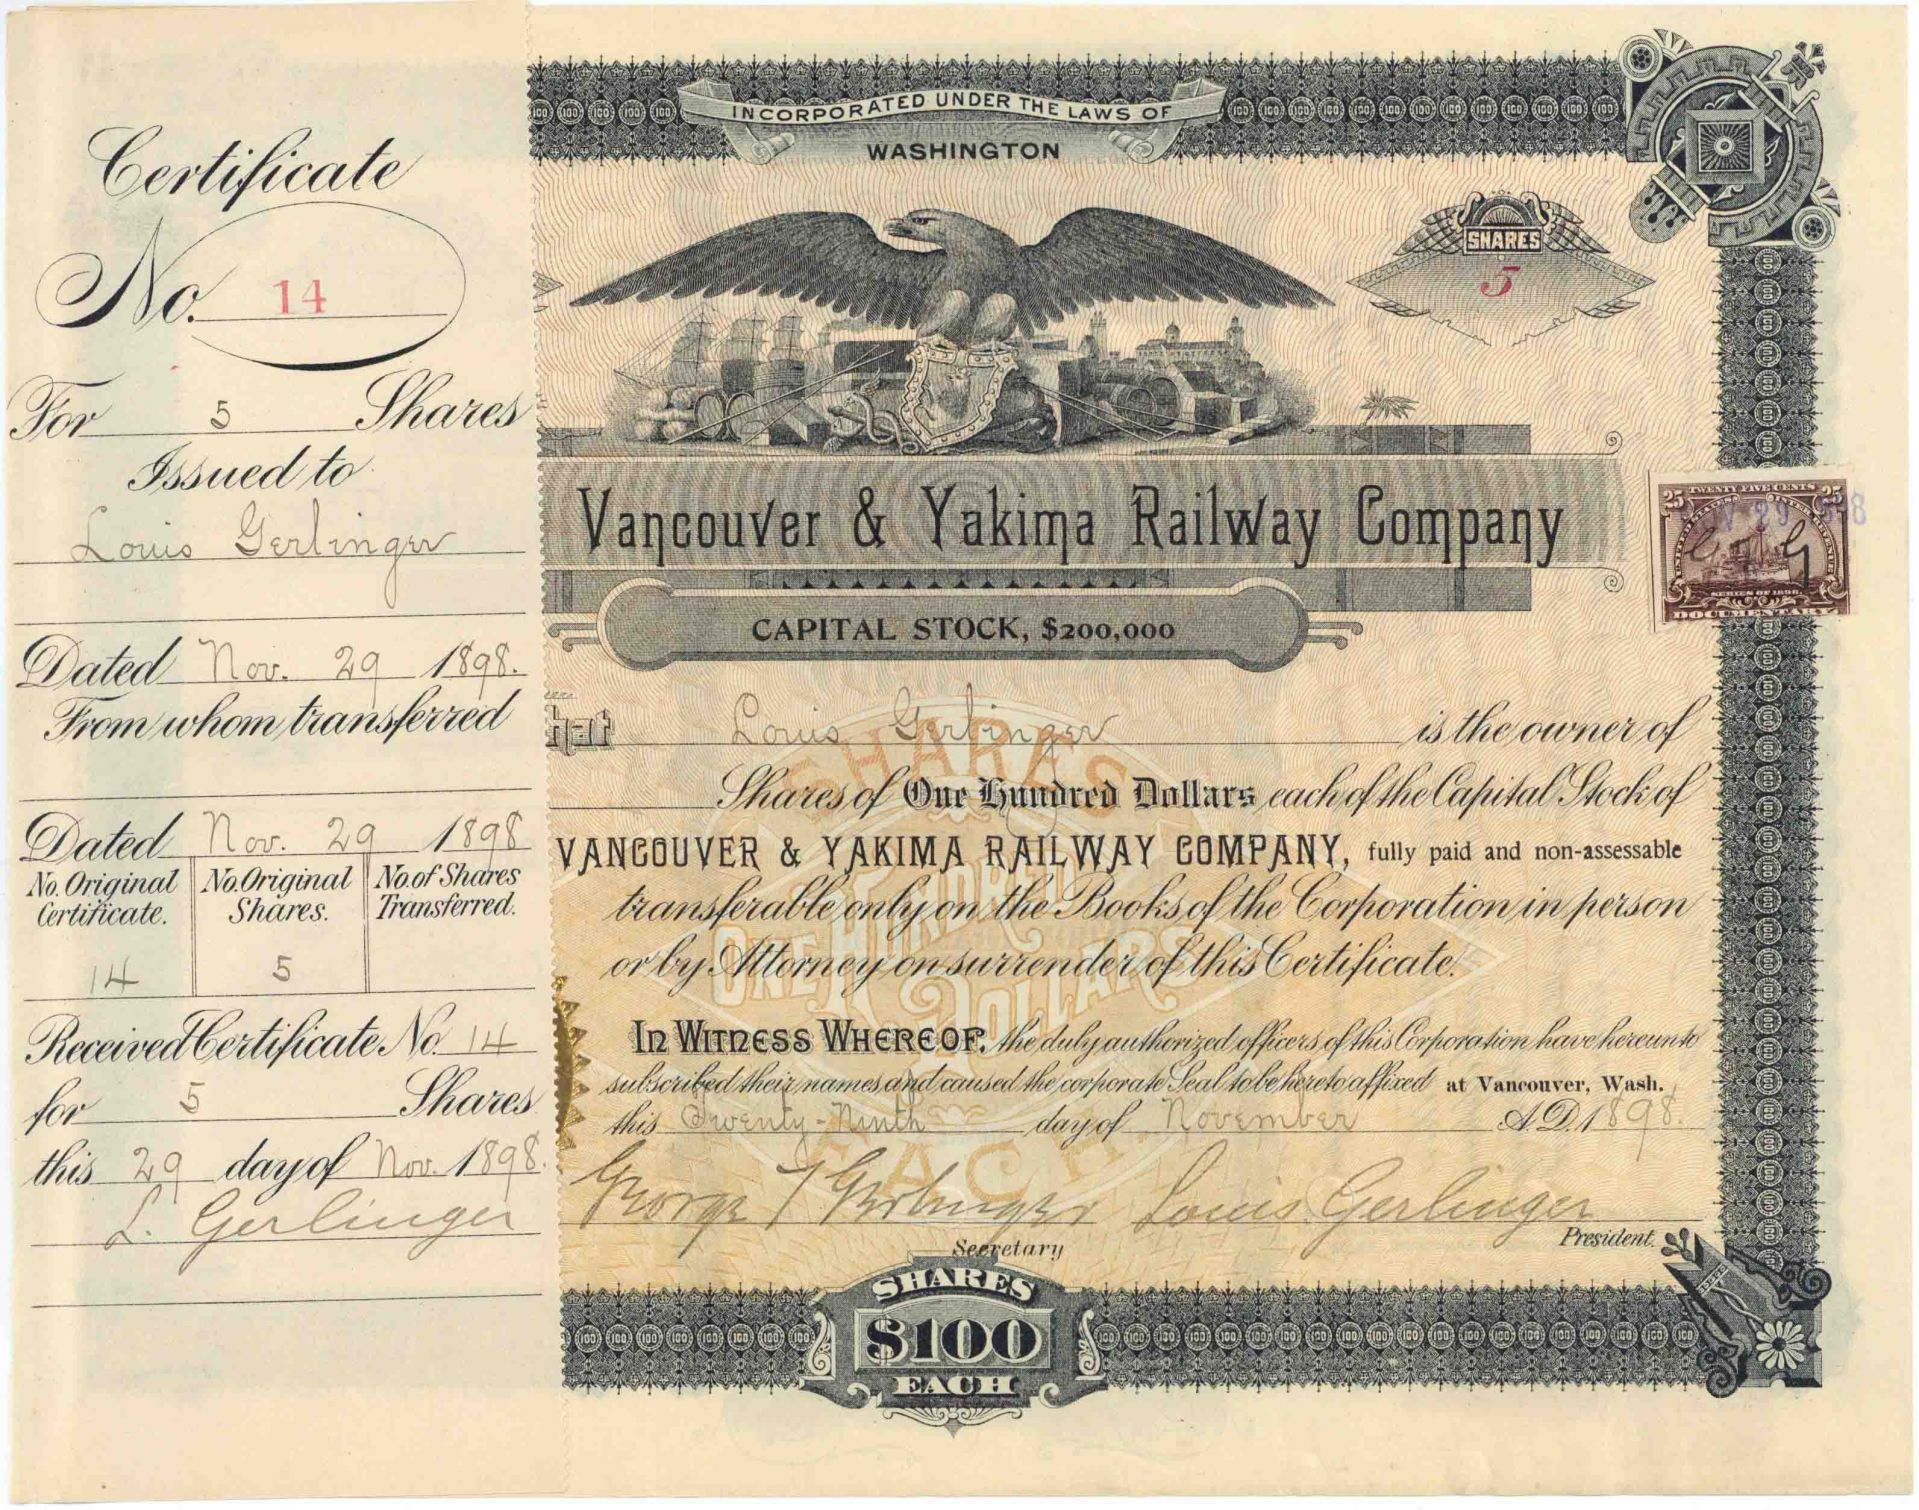 Certificate
No. 14
For 5 Shares
Issued to
Louis Gerlinger
Dated Nov. 29 1898.
From whom transferred
Dated Nov. 29 1898
No. Original Certificate. No. Original Shares. No. of Shares Transferred.
14 5
Received Certificate No. 14
for 5 Shares
this 29 day of Nov. 1898.
L. Gerlinger
INCORPORATED UNDER THE LAWS OF
WASHINGTON
SHARES
5
Vancouver & Yakima Railway Company
CAPITAL STOCK, $200,000
25 TWENTY FIVE CENTS 25
NOV 29 1898
G G
SERIES OF 1898
DOCUMENTARY
hat Louis Gerlinger is the owner of
Shares of One Hundred Dollars each of the Capital Stock of
VANCOUVER & YAKIMA RAILWAY COMPANY, fully paid and non-assessable
transferable only on the Books of the Corporation in person
or by Attorney on surrender of this Certificate.
SHARES
ONE HUNDRED DOLLARS
EACH
In Witness Whereof, the duly authorized officers of this Corporation have hereunto
subscribed their names and caused the corporate Seal to be hereto affixed at Vancouver, Wash.
this Twenty-Ninth day of November A.D. 1898.
George T Gerlinger Louis Gerlinger
Secretary President.
SHARES
$100
EACH